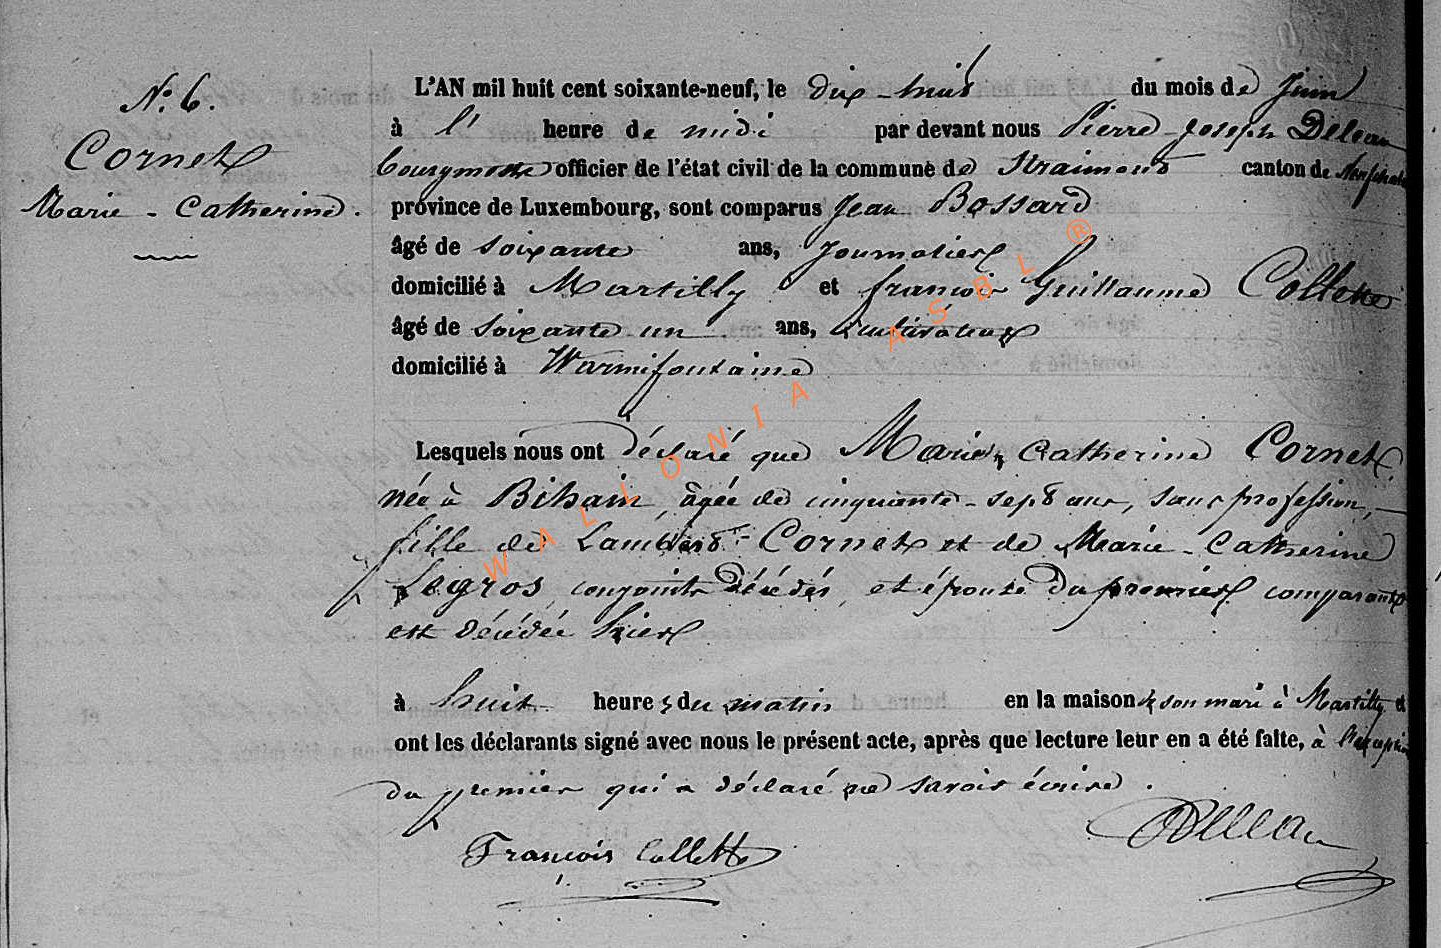 N.° 6.
Cornet
Marie-Catherine.
L'AN mil huit cent soixante-neuf, le dix-huit du mois de Juin
à l' heure de midi par devant nous Pierre-Joseph Deleau
bourgmestre officier de l'état civil de la commune de Straimont canton de Neufchateau
province de Luxembourg, sont comparus Jean Bossard
âgé de soixante ans, journalier
domicilié à Martilly et françois Guillaume Collette
âgé de soixante un ans, cultivateur
domicilié à Warmifontaine
Lesquels nous ont déclaré que Marie Catherine Cornet
née à Bihain, âgée de cinquante-sept ans, sans profession,
fille de Lambert Cornet et de Marie-Catherine
Legros, conjoints décédés, et épouse du premier comparant
est décédée hier
à huit heures du matin en la maison de son mari à Martilly et
ont les déclarants signé avec nous le présent acte, après que lecture leur en a été faite, à l'exception
du premier qui a déclaré ne savoir écrire.
François Collette
Deleau
WALLONIA ASBL ®